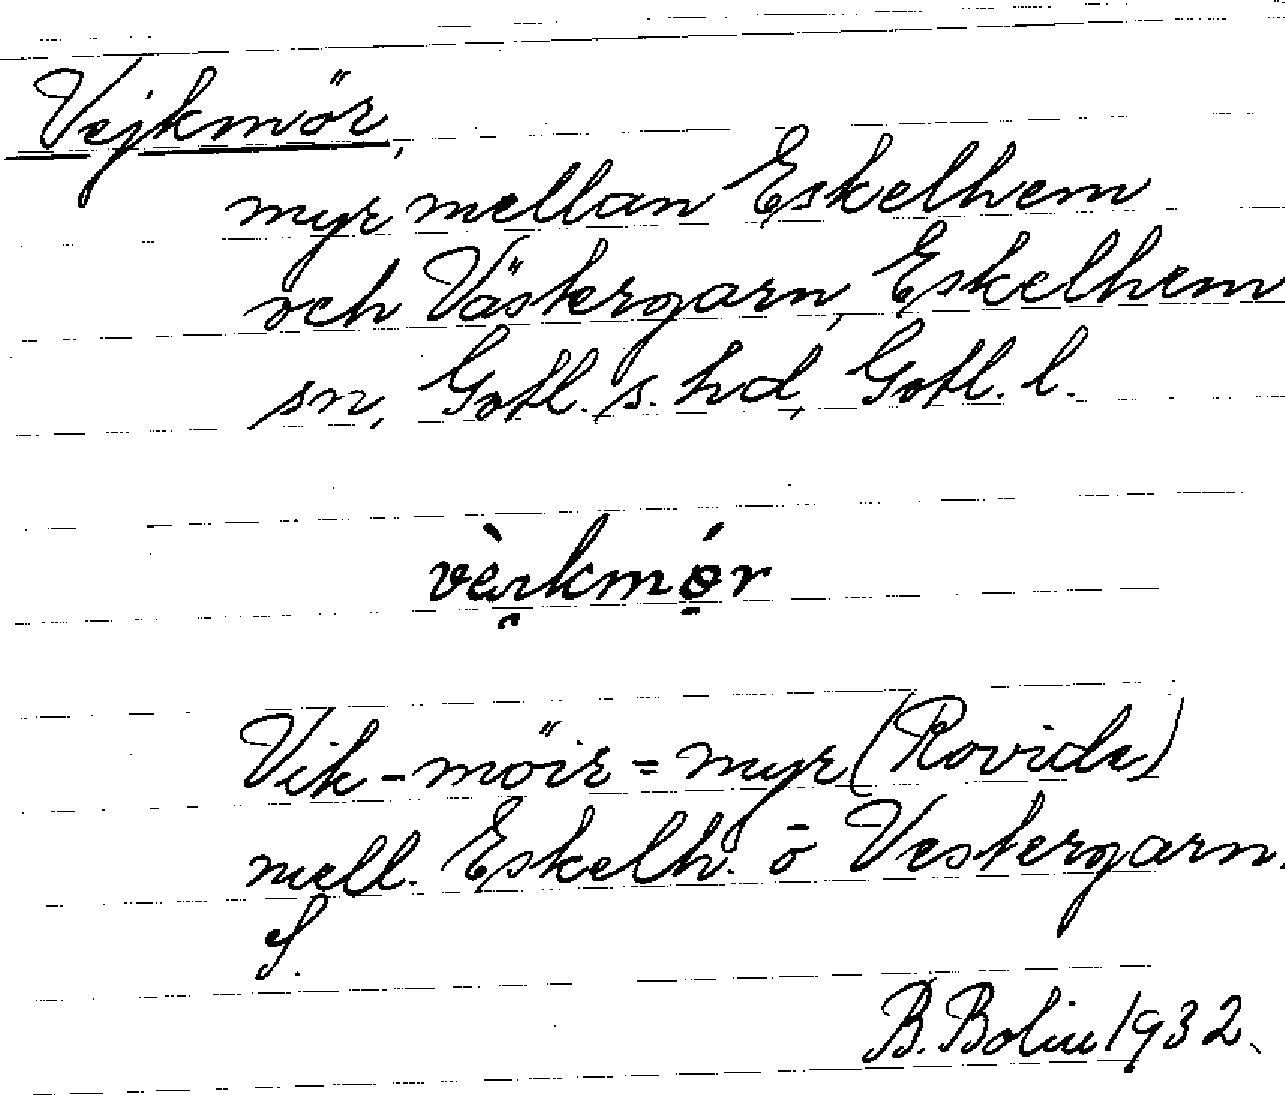 Vejkmör,
myr mellan Eskelhem
och Västergarn, Eskelhem
sn, Gotl. s. hd, Gotl. l.
Vik-möir = myr (Rovida)
mell. Eskelh. o Vestergarn.
S.
B. Bolin 1932.